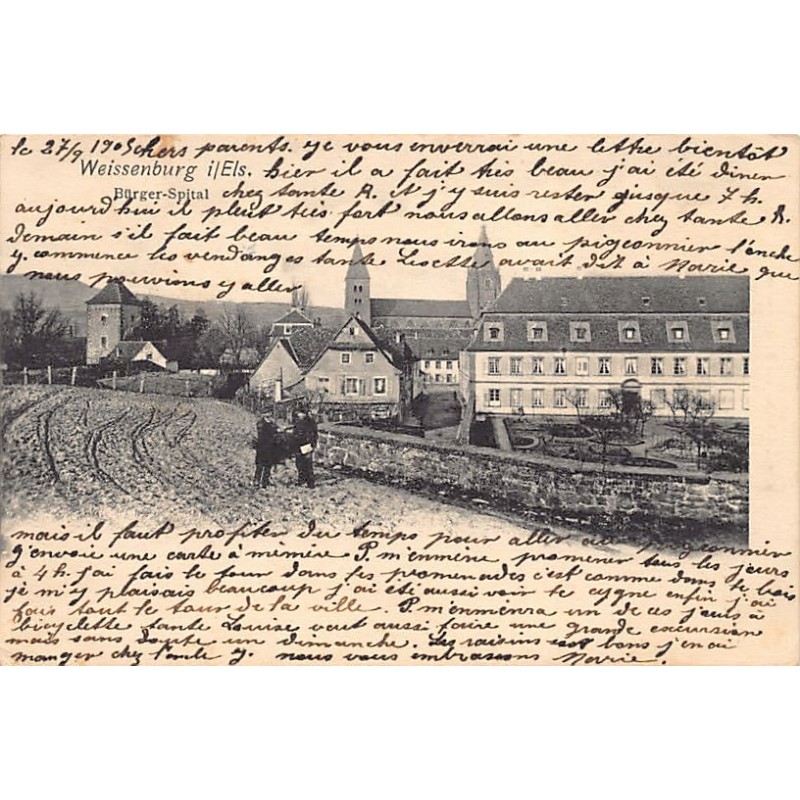 le 27/9 1905 chers parents. je vous enverrai une lettre bientôt
Weissenburg i/Els. hier il a fait très beau j'ai été diner
Bürger-Spital chez tante A. et j'y suis rester jusque 7 h.
aujourd'hui il pleut très fort nous allons aller chez tante A.
demain s'il fait beau temps nous irons au pigeonnier l'oncle
y commence les vendanges tante Lisette avait dit à Marie que
nous pouvions y aller
mais il faut profiter du temps pour aller au pigeonnier
j'envoie une carte à mémère P. m'emmène promener tous les jours
à 4 h. j'ai fais le tour dans les promenades c'est comme dans le bois
je m'y plaisais beaucoup j'ai été aussi voir le cygne enfin j'ai
fais tout le tour de la ville. P. m'emmenra un de ces jours à
bicyclette tante Louise veut aussi faire une grande excursion
mais sans doute un dimanche. Les raisins sont bons j'en ai
manger chez l'oncle y. nous vous embrassons Marie.